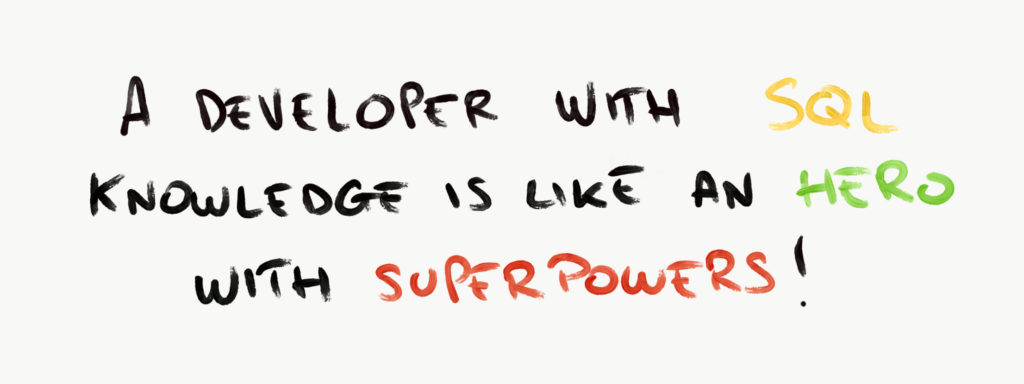 A DEVELOPER WITH SQL
KNOWLEDGE IS LIKE AN HERO
WITH SUPERPOWERS!